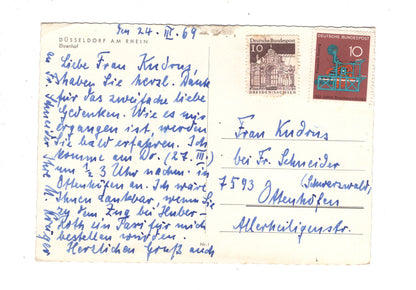 den 24. III. 69
DÜSSELDORF AM RHEIN
Ehrenhof
Liebe Frau Kudrus,
haben Sie herzl. Dank
für das zweifache liebe
Gedenken. Wie es mir
ergangen ist, werden
Sie bald erfahren. Ich
komme am Do. (27. III.)
um ½ 3 Uhr nachm. in
Ottenhöfen an. Ich wäre
Ihnen dankbar, wenn Sie
zu dem Zug bei Huber-
Roth ein Taxi für mich
bestellen würden.
Herzlichen Gruß auch
an Fr. Schneider Ihre M. Krüger
DEUTSCHE BUNDESPOST
10
DRESDEN/SACHSEN
DEUTSCHE BUNDESPOST
10
Frau Kudrus
bei Fr. Schneider
7593 (Schwarzwald)
Ottenhöfen
Allerheiligenstr.